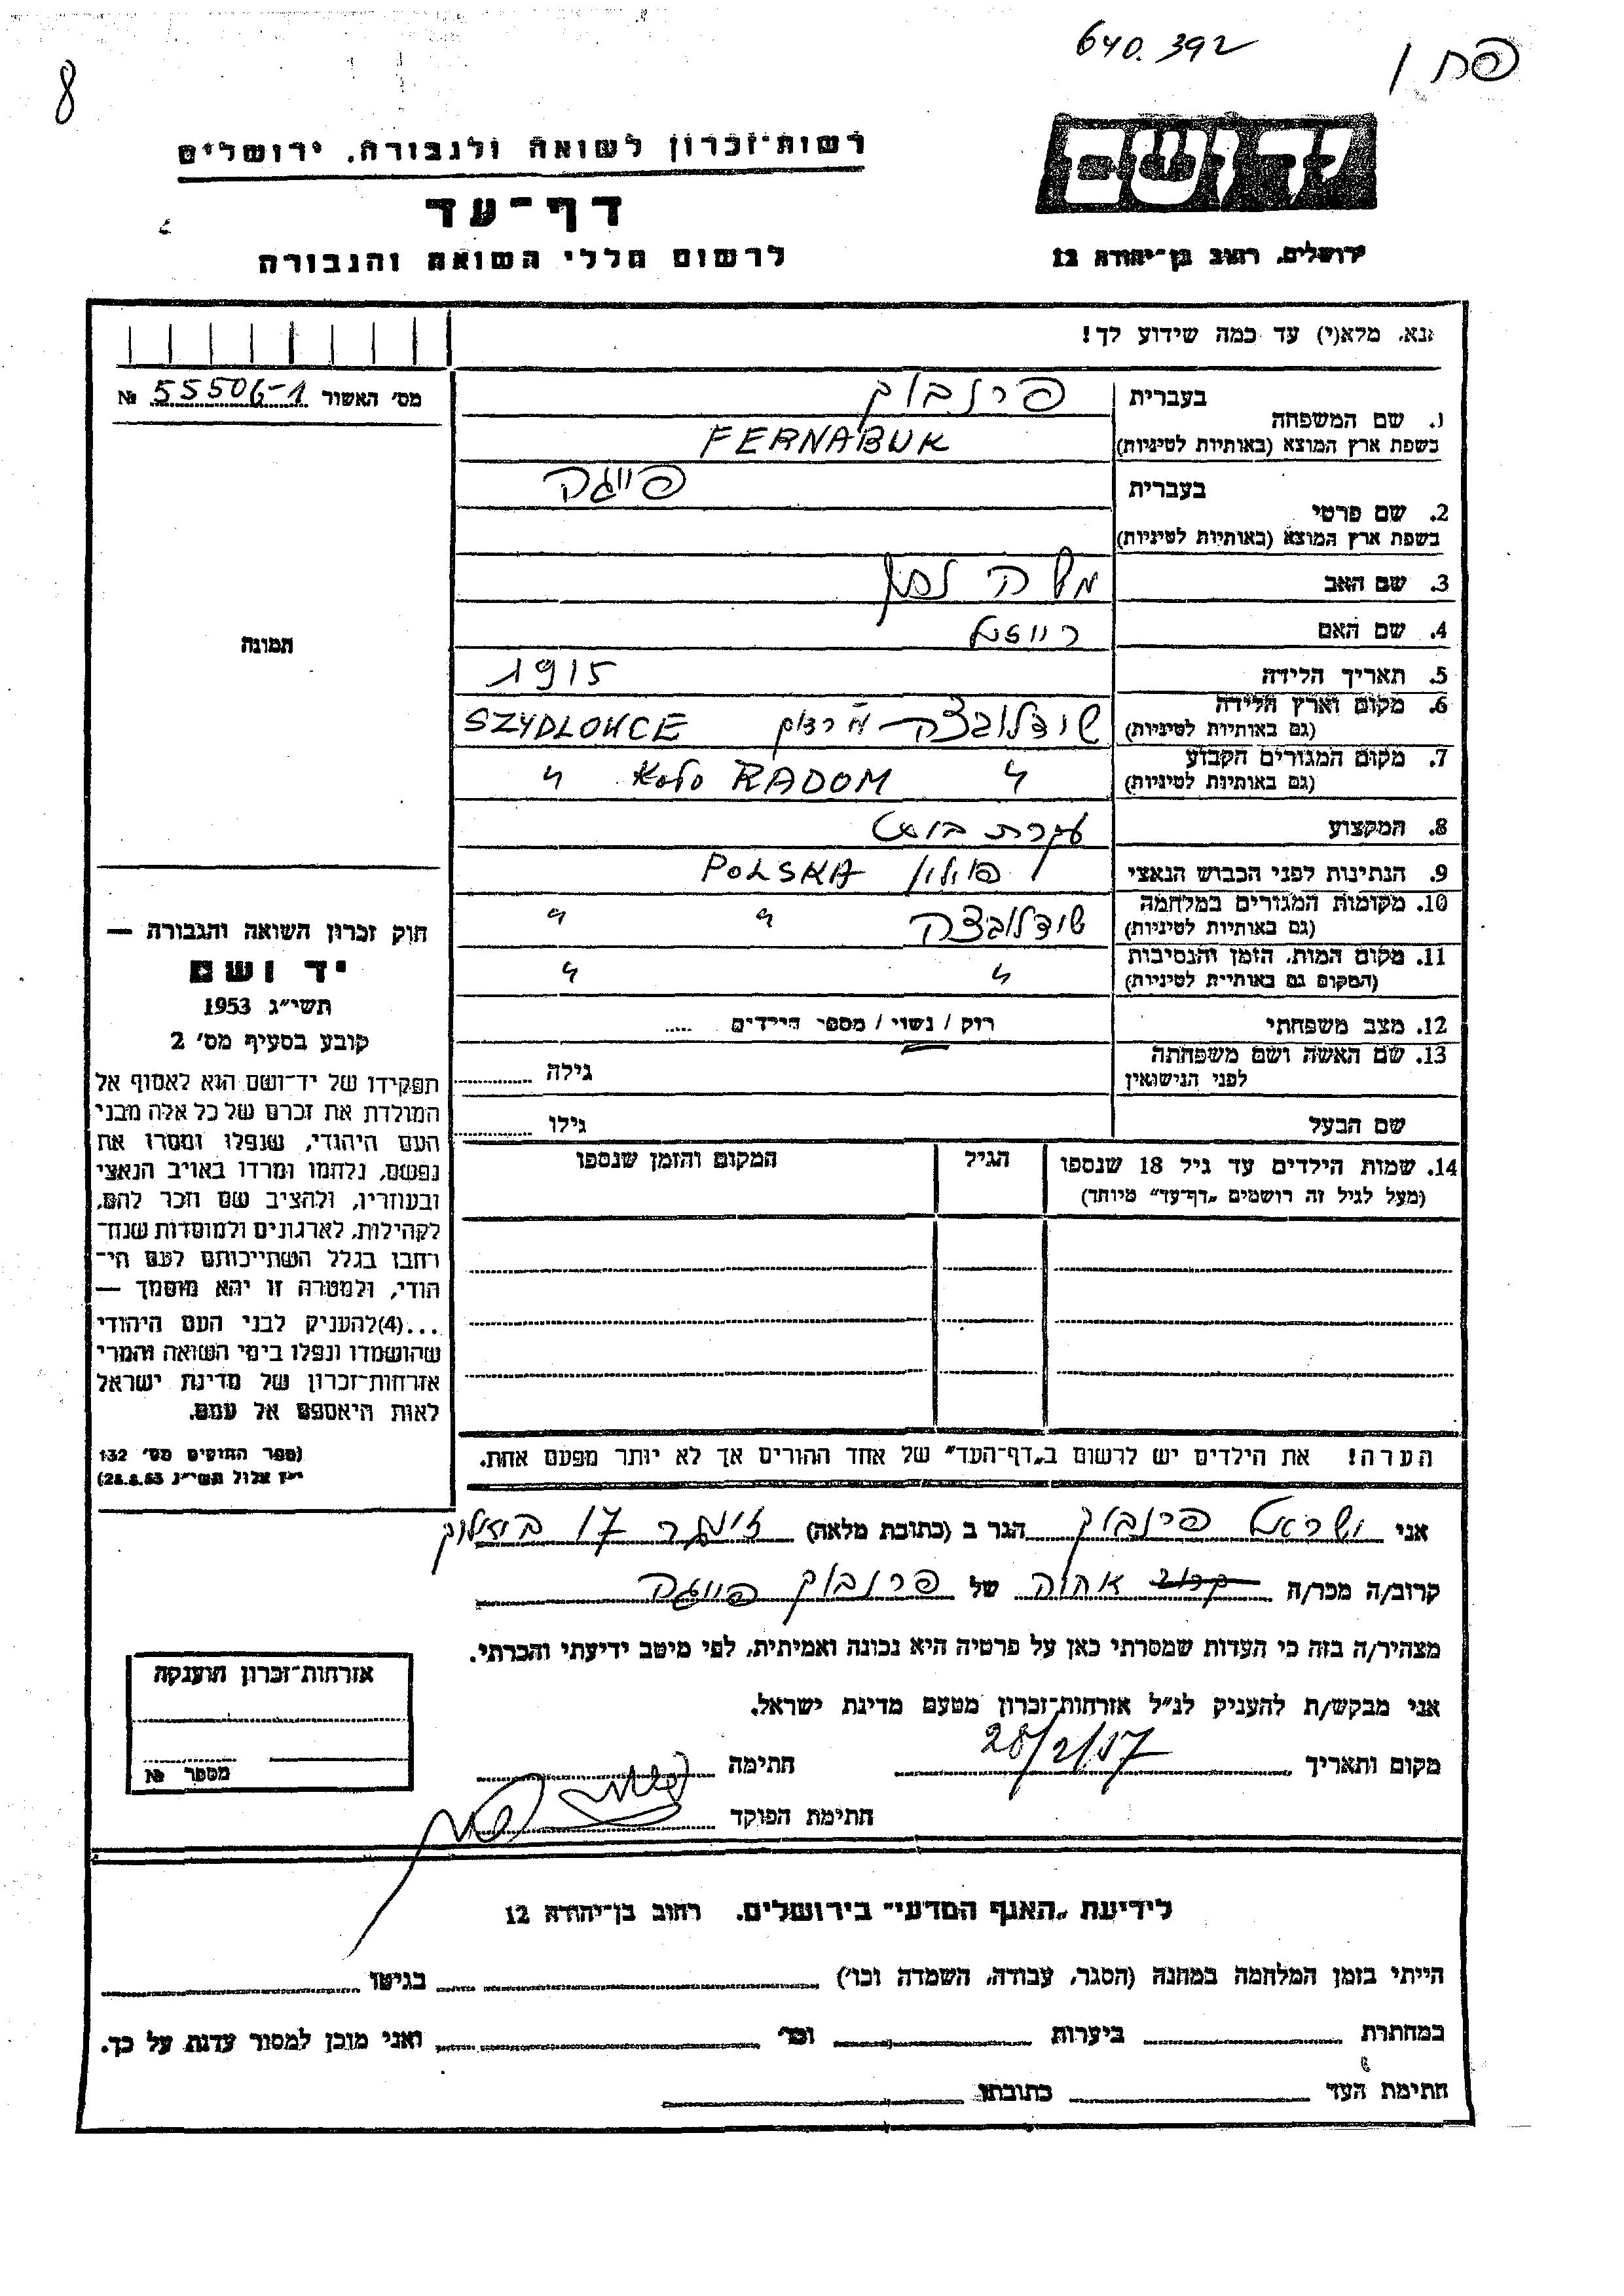 640.392
פח 1
8
יד ושם
רשות־זכרון לשואה ולגבורה, ירושלים
דף־עד
לרשום חללי השואה והגבורה
ירושלים, רחוב בן־יהודה 12
נא, מלא(י) עד כמה שידוע לך!
מס' האשור 55506-1 №
תמונה
1. שם המשפחה
בעברית פרנבוק
בשפת ארץ המוצא (באותיות לטיניות) FERNABUK
2. שם פרטי
בעברית פייגה
בשפת ארץ המוצא (באותיות לטיניות)
3. שם האב משה
4. שם האם
5. תאריך הלידה 1915
6. מקום וארץ הלידה שידלובצה
(גם באותיות לטיניות) SZYDLOWCE
7. מקום המגורים הקבוע " "
(גם באותיות לטיניות) Koło RADOM
8. המקצוע עקרת בית
9. הנתינות לפני הכבוש הנאצי פולין POLSKA
10. מקומות המגורים במלחמה שידלובצה " "
(גם באותיות לטיניות)
11. מקום המות, הזמן והנסיבות " "
(המקום גם באותיות לטיניות)
12. מצב משפחתי רוק / נשוי / מספר הילדים .....
13. שם האשה ושם משפחתה
לפני הנישואין גילה
שם הבעל גילו
14. שמות הילדים עד גיל 18 שנספו הגיל המקום והזמן שנספו
(מעל לגיל זה רושמים „דף־עד" מיוחד)
הערה! את הילדים יש לרשום ב„דף־העד" של אחד ההורים אך לא יותר מפעם אחת.
חוק זכרון השואה והגבורה —
יד ושם
תשי״ג 1953
קובע בסעיף מס' 2
תפקידו של יד־ושם הוא לאסוף אל
המולדת את זכרם של כל אלה מבני
העם היהודי, שנפלו ומסרו את
נפשם, נלחמו ומרדו באויב הנאצי
ובעוזריו, ולהציב שם וזכר להם,
לקהילות, לארגונים ולמוסדות שנח־
רבו בגלל השתייכותם לעם הי־
הודי, ולמטרה זו יהא מוסמך —
...(4)להעניק לבני העם היהודי
שהושמדו ונפלו בימי השואה והמרי
אזרחות־זכרון של מדינת ישראל
לאות היאספם אל עמם.
(ספר החוקים מס' 132
י״ז אלול תשי״ג 28.8.53)
אני ישראל פרנבוק הגר ב (כתובת מלאה) 17
קרוב/ה מכר/ה אחיה של פרנבוק פייגה
מצהיר/ה בזה כי העדות שמסרתי כאן על פרטיה היא נכונה ואמיתית, לפי מיטב ידיעתי והכרתי.
אני מבקש/ת להעניק לנ״ל אזרחות־זכרון מטעם מדינת ישראל.
מקום ותאריך 28/2/57 חתימה
חתימת הפוקד
אזרחות־זכרון הוענקה
מספר №
לידיעת „האגף המדעי" בירושלים. רחוב בן־יהודה 12
הייתי בזמן המלחמה במחנה (הסגר, עבודה, השמדה וכו') בגיטו
במחתרת ביערות וכו' ואני מוכן למסור עדות על כך.
חתימת העד כתובתו